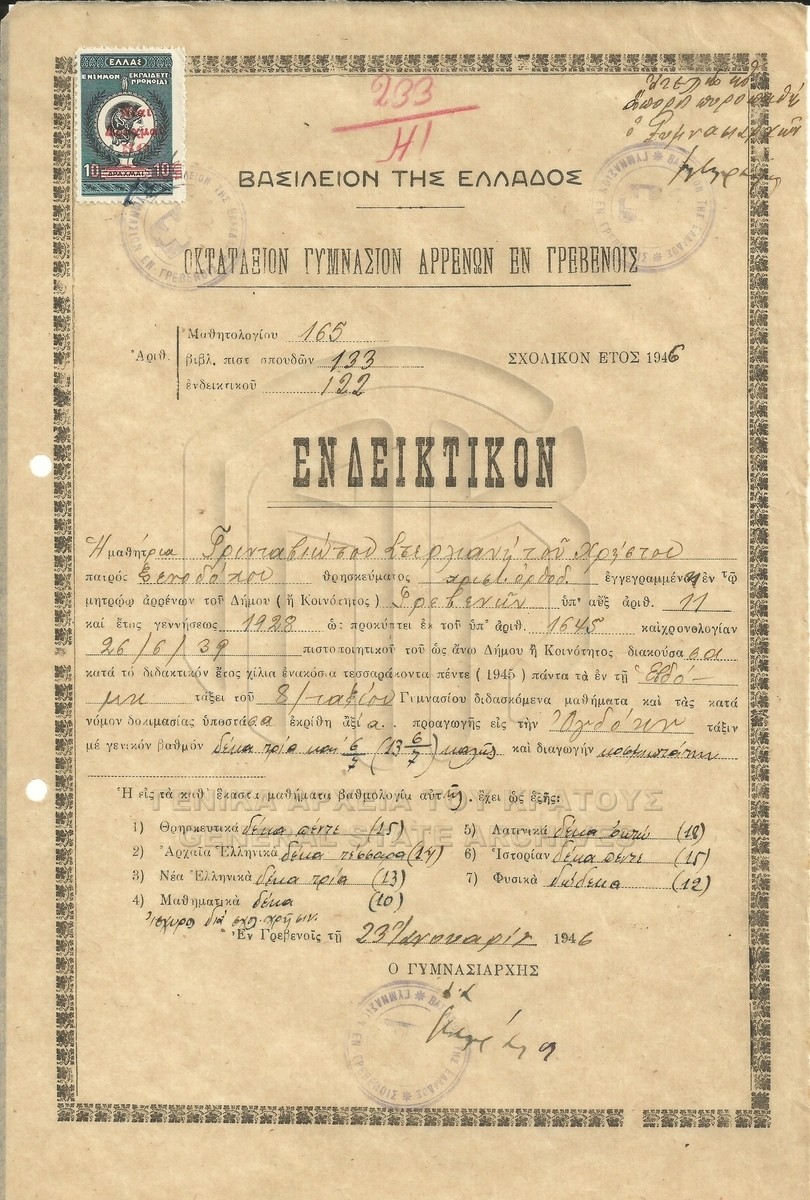 ΕΛΛΑΣ
ΕΝΣΗΜΟΝ ΕΚΠΑΙΔΕΥΤ.
ΠΡΟΝΟΙΑΣ
Νέαι
Δραχμαί
10 ΔΡΑΧΜΑΙ 10
233
Η1
Ἀτελῶς
ὁ Γυμνασιάρχης
ΒΑΣΙΛΕΙΟΝ ΤΗΣ ΕΛΛΑΔΟΣ
ΟΚΤΑΤΑΞΙΟΝ ΓΥΜΝΑΣΙΟΝ ΑΡΡΕΝΩΝ ΕΝ ΓΡΕΒΕΝΟΙΣ
Μαθητολογίου 165
Ἀριθ. βιβλ. πιστ σπουδῶν 133 ΣΧΟΛΙΚΟΝ ΕΤΟΣ 1946
ἐνδεικτικοῦ 122
ΕΝΔΕΙΚΤΙΚΟΝ
Ἡ μαθήτρια Τρινταβιώτσου Στεργιανὴ τοῦ Χρήστου
πατρὸς Ξενοδόχου θρησκεύματος χριστ. ὀρθοδ. ἐγγεγραμμένη ἐν τῷ
μητρῴῳ ἀρρένων τοῦ Δήμου (ἢ Κοινότητος) Γρεβενῶν ὑπ' αὔξ ἀριθ. 11
καὶ ἔτος γεννήσεως 1928 ὡς προκύπτει ἐκ τοῦ ὑπ' ἀριθ. 1645 καὶ χρονολογίαν
26/6/39 πιστοποιητικοῦ τοῦ ὡς ἄνω Δήμου ἢ Κοινότητος διακούσασα
κατὰ τὸ διδακτικὸν ἔτος χίλια ἐνακόσια τεσσαράκοντα πέντε (1945) πάντα τὰ ἐν τῇ Ἑβδό-
μῃ τάξει τοῦ 8/ταξίου Γυμνασίου διδασκόμενα μαθήματα καὶ τὰς κατὰ
νόμον δοκιμασίας ὑποστᾶσα ἐκρίθη ἀξία προαγωγῆς εἰς τὴν Ὀγδόην τάξιν
μὲ γενικὸν βαθμὸν δέκα τρία καὶ 6/7 (13 6/7) καλῶς καὶ διαγωγὴν κοσμιωτάτην
Ἡ εἰς τὰ καθ' ἕκαστα μαθήματα βαθμολογία αὐτῆς ἔχει ὡς ἑξῆς:
ΓΕΝΙΚΑ ΑΡΧΕΙΑ ΤΟΥ ΚΡΑΤΟΥΣ
GENERAL STATE ARCHIVES
1) Θρησκευτικὰ δέκα πέντε (15) 5) Λατινικὰ δέκα ὀκτώ (18)
2) Ἀρχαῖα Ἑλληνικὰ δέκα τέσσαρα (14) 6) Ἱστορίαν δέκα πέντε (15)
3) Νέα Ἑλληνικὰ δέκα τρία (13) 7) Φυσικὰ δώδεκα (12)
4) Μαθηματικὰ δέκα (10)
Ἰσχύει διὰ σχολ. χρῆσιν.
Ἐν Γρεβενοῖς τῇ 23ῃ Ἰανουαρίου 1946
Ο ΓΥΜΝΑΣΙΑΡΧΗΣ